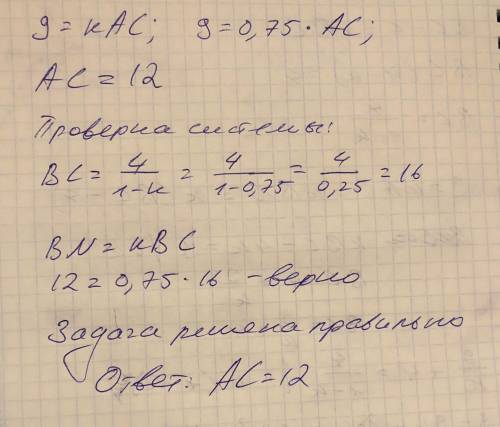 9 = кAC; 9 = 0,75 · AC;
AC = 12
Проверка системы:
BC = 4/(1-к) = 4/(1-0,75) = 4/0,25 = 16
BN = кBC
12 = 0,75 · 16 - верно
Задача решена правильно
Ответ: AC = 12